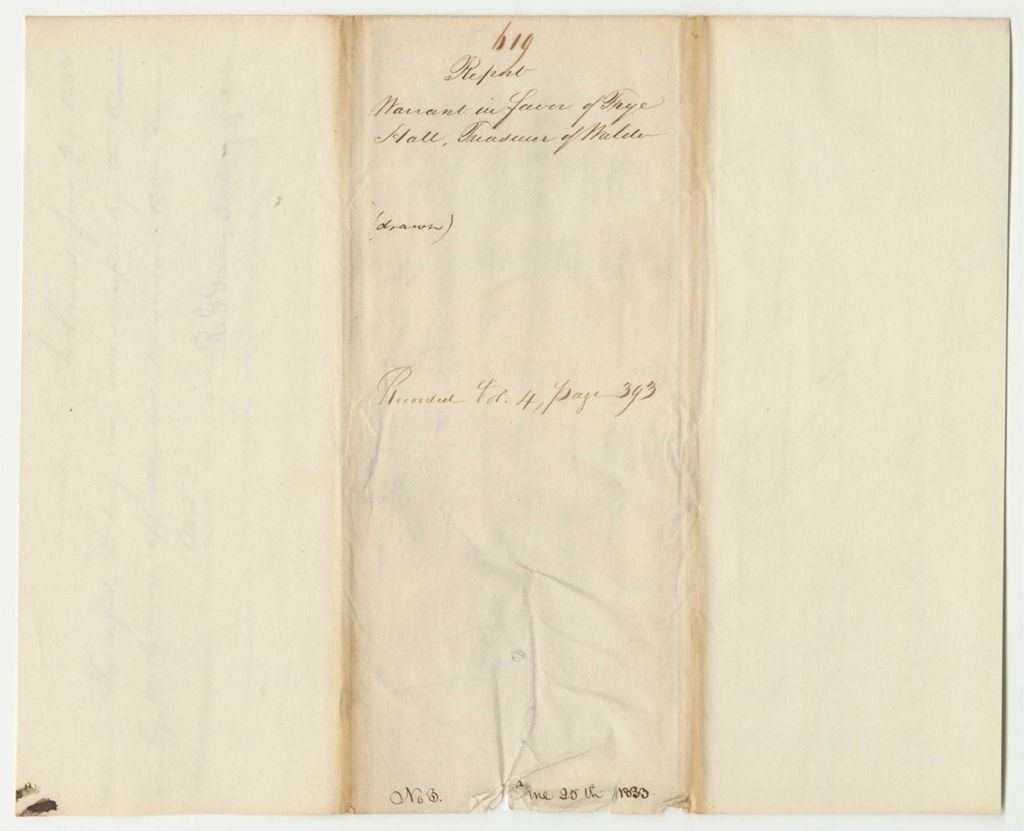 619
Report
Warrant in favor of Frye
Hall, Treasurer of Waldo
(drawn)
Recorded Vol. 4, page 393
No 3. June 25th 1833.